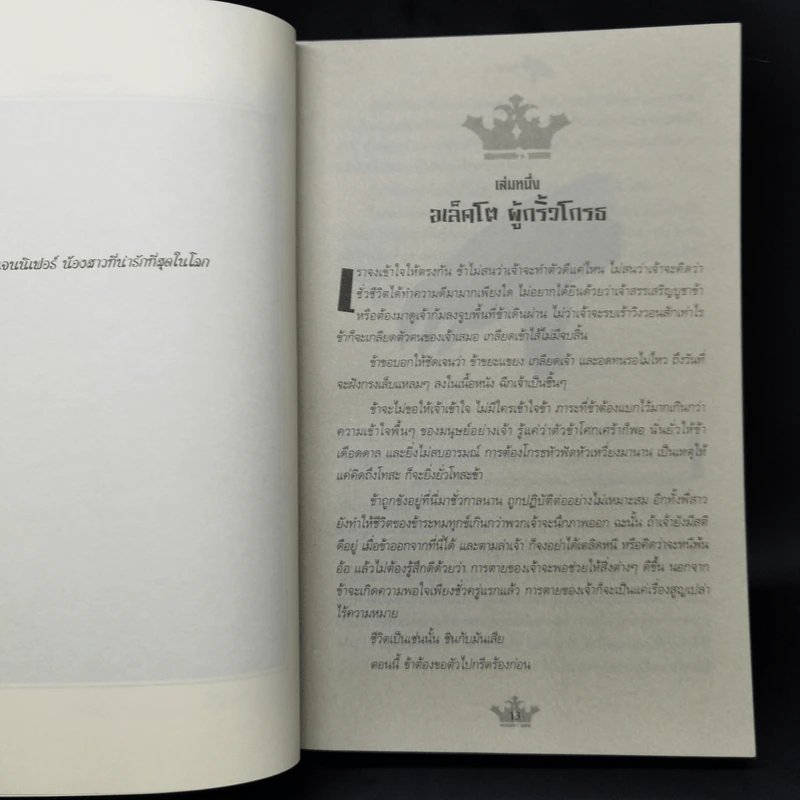 เจนนิเฟอร์ น้องสาวที่น่ารักที่สุดในโลก
เล่มหนึ่ง
อเล็คโต ผู้กริ้วโกรธ
เราจงเข้าใจให้ตรงกัน ข้าไม่สนว่าเจ้าจะทำตัวดีแค่ไหน ไม่สนว่าเจ้าจะคิดว่า
ชั่วชีวิตได้ทำความดีมามากเพียงใด ไม่อยากได้ยินด้วยว่าเจ้าสรรเสริญบูชาข้า
หรือต้องมาดูเจ้าก้มลงจูบพื้นที่ข้าเดินผ่าน ไม่ว่าเจ้าจะรบเร้าวิงวอนสักเท่าไร
ข้าก็จะเกลียดตัวตนของเจ้าเสมอ เกลียดเข้าไส้ไม่มีจบสิ้น
ข้าขอบอกให้ชัดเจนว่า ข้าขยะแขยง เกลียดเจ้า และอดทนรอไม่ไหว ถึงวันที่
จะฝังกรงเล็บแหลมๆ ลงในเนื้อหนัง ฉีกเจ้าเป็นชิ้นๆ
ข้าจะไม่ขอให้เจ้าเข้าใจ ไม่มีใครเข้าใจข้า ภาระที่ข้าต้องแบกไว้มากเกินกว่า
ความเข้าใจพื้นๆ ของมนุษย์อย่างเจ้า รู้แค่ว่าตัวข้าโศกเศร้าก็พอ นั่นยั่วให้ข้า
เดือดดาล และยิ่งไม่สบอารมณ์ การต้องโกรธหัวฟัดหัวเหวี่ยงมานาน เป็นเหตุให้
แค่คิดถึงโทสะ ก็จะยิ่งยั่วโทสะข้า
ข้าถูกขังอยู่ที่นี่มาชั่วกาลนาน ถูกปฏิบัติต่ออย่างไม่เหมาะสม อีกทั้งพี่สาว
ยังทำให้ชีวิตของข้าระทมทุกข์เกินกว่าพวกเจ้าจะนึกภาพออก ฉะนั้น ถ้าเจ้ายังมีสติ
ดีอยู่ เมื่อข้าออกจากที่นี่ได้ และตามล่าเจ้า ก็จงอย่าได้เตลิดหนี หรือคิดว่าจะหนีพ้น
อ้อ แล้วไม่ต้องรู้สึกดีด้วยว่า การตายของเจ้าจะพอช่วยให้สิ่งต่างๆ ดีขึ้น นอกจาก
ข้าจะเกิดความพอใจเพียงชั่วครู่แรกแล้ว การตายของเจ้าก็จะเป็นแค่เรื่องสูญเปล่า
ไร้ความหมาย
ชีวิตเป็นเช่นนั้น ชินกับมันเสีย
ตอนนี้ ข้าต้องขอตัวไปกรีดร้องก่อน
13